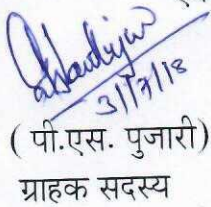 31/7/18
( पी.एस. पुजारी)
ग्राहक सदस्य